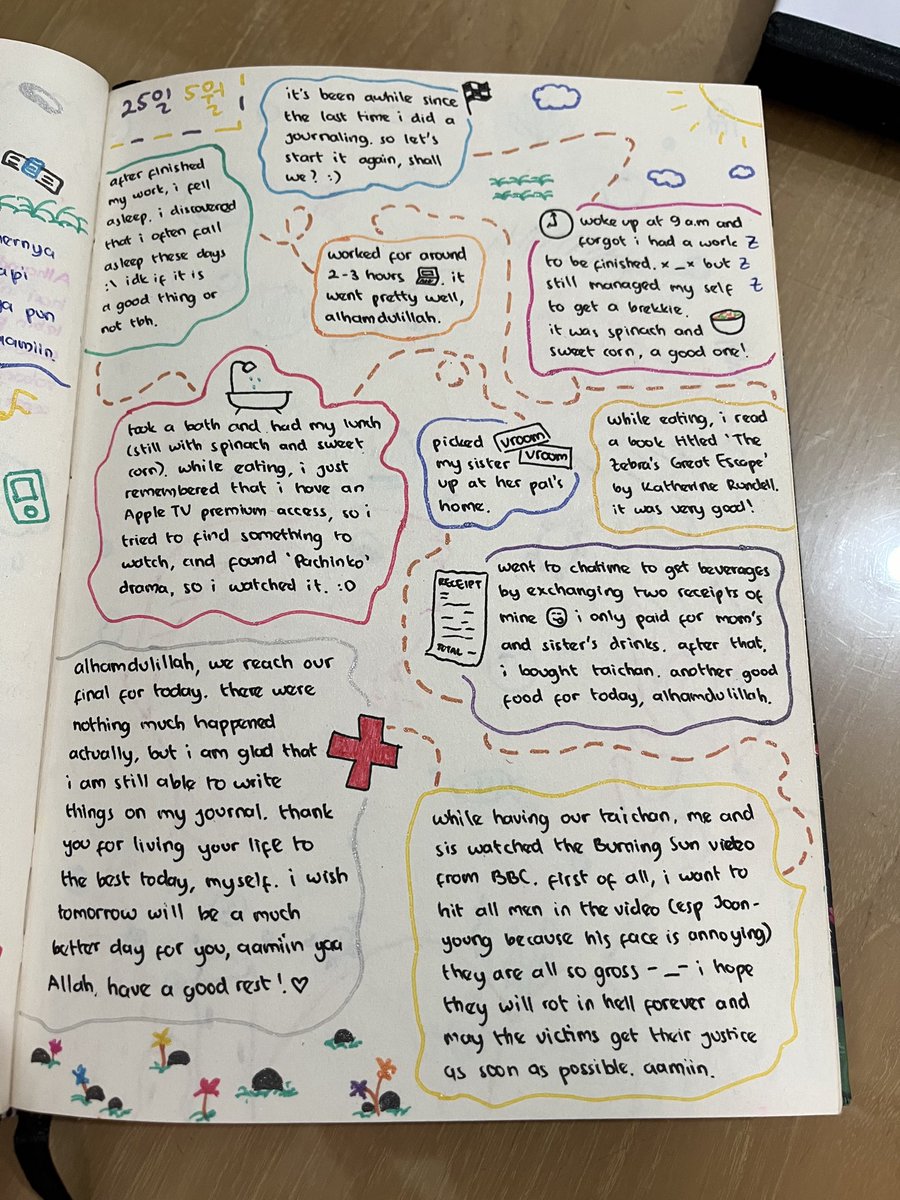 25일 5월
it's been awhile since
the last time i did a
journaling. so let's
start it again, shall
we? :)
woke up at 9 a.m and
forgot i had a work
to be finished. x_x but
still managed my self
to get a brekkie.
it was spinach and
sweet corn, a good one!
z
z
z
while eating, i read
a book titled 'The
Zebra's Great Escape'
by Katherine Rundell.
it was very good!
worked for around
2-3 hours. it
went pretty well,
alhamdulillah.
after finished
my work, i fell
asleep. i discovered
that i often fall
asleep these days
:\ idk if it is
a good thing or
not tbh.
took a bath and had my lunch
(still with spinach and sweet
corn). while eating, i just
remembered that i have an
Apple TV premium access, so i
tried to find something to
watch, and found 'Pachinko'
drama, so i watched it. :O
picked vroom
my sister vroom
up at her pal's
home.
RECEIPT
TOTAL
went to chatime to get beverages
by exchanging two receipts of
mine i only paid for mom's
and sister's drinks. after that,
i bought taichan. another good
food for today, alhamdulillah.
while having our taichan, me and
sis watched the Burning Sun video
from BBC. first of all, i want to
hit all men in the video (esp Joon-
young because his face is annoying)
they are all so gross -_- i hope
they will rot in hell forever and
may the victims get their justice
as soon as possible. aamiin.
alhamdulillah, we reach our
final for today. there were
nothing much happened
actually, but i am glad that
i am still able to write
things on my journal. thank
you for living your life to
the best today, myself. i wish
tomorrow will be a much
better day for you, aamiin yaa
Allah. have a good rest! ♡
ernya
api
pun
aamiin.